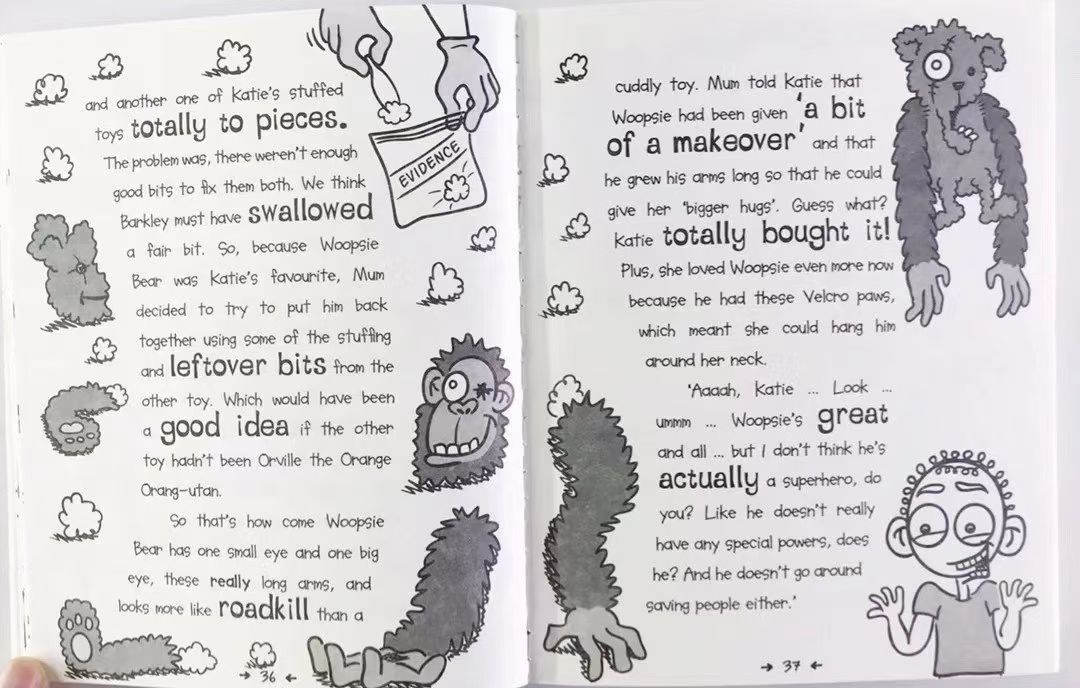 and another one of Katie's stuffed
toys totally to pieces.
The problem was, there weren't enough
good bits to fix them both. We think
Barkley must have swallowed
a fair bit. So, because Woopsie
Bear was Katie's favourite, Mum
decided to try to put him back
together using some of the stuffing
and leftover bits from the
other toy. Which would have been
a good idea if the other
toy hadn't been Orville the Orange
Orang-utan.
So that's how come Woopsie
Bear has one small eye and one big
eye, these really long arms, and
looks more like roadkill than a
EVIDENCE
36
cuddly toy. Mum told Katie that
Woopsie had been given 'a bit
of a makeover' and that
he grew his arms long so that he could
give her 'bigger hugs'. Guess what?
Katie totally bought it!
Plus, she loved Woopsie even more now
because he had these Velcro paws,
which meant she could hang him
around her neck.
'Aaaah, Katie ... Look ...
ummm ... Woopsie's great
and all ... but I don't think he's
actually a superhero, do
you? Like he doesn't really
have any special powers, does
he? And he doesn't go around
saving people either.'
37